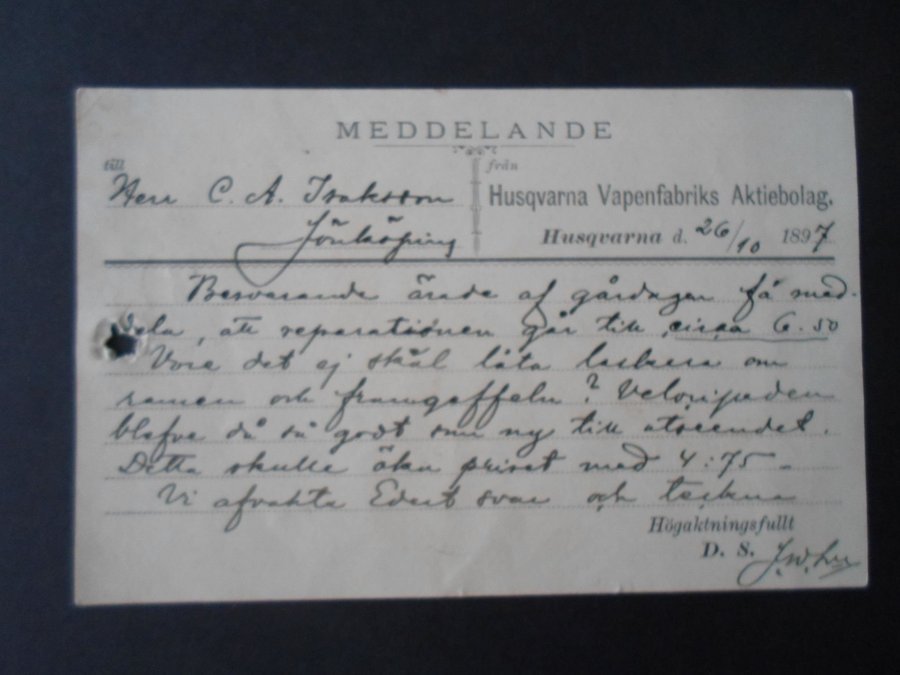 MEDDELANDE
till
Herr C. A. Isaksson
Jönköping
från
Husqvarna Vapenfabriks Aktiebolag.
Husqvarna d. 26/10 1897
Besvarande ärade af gårdagen få med-
dela, att reparationen går till circa 6.50
Vore det ej skäl låta lackera om
ramen och framgaffeln? Velocipeden
blefve då så godt som ny till utseendet.
Detta skulle öka priset med 4:75
Vi afvakta Edert svar och teckna
Högaktningsfullt
D. S.